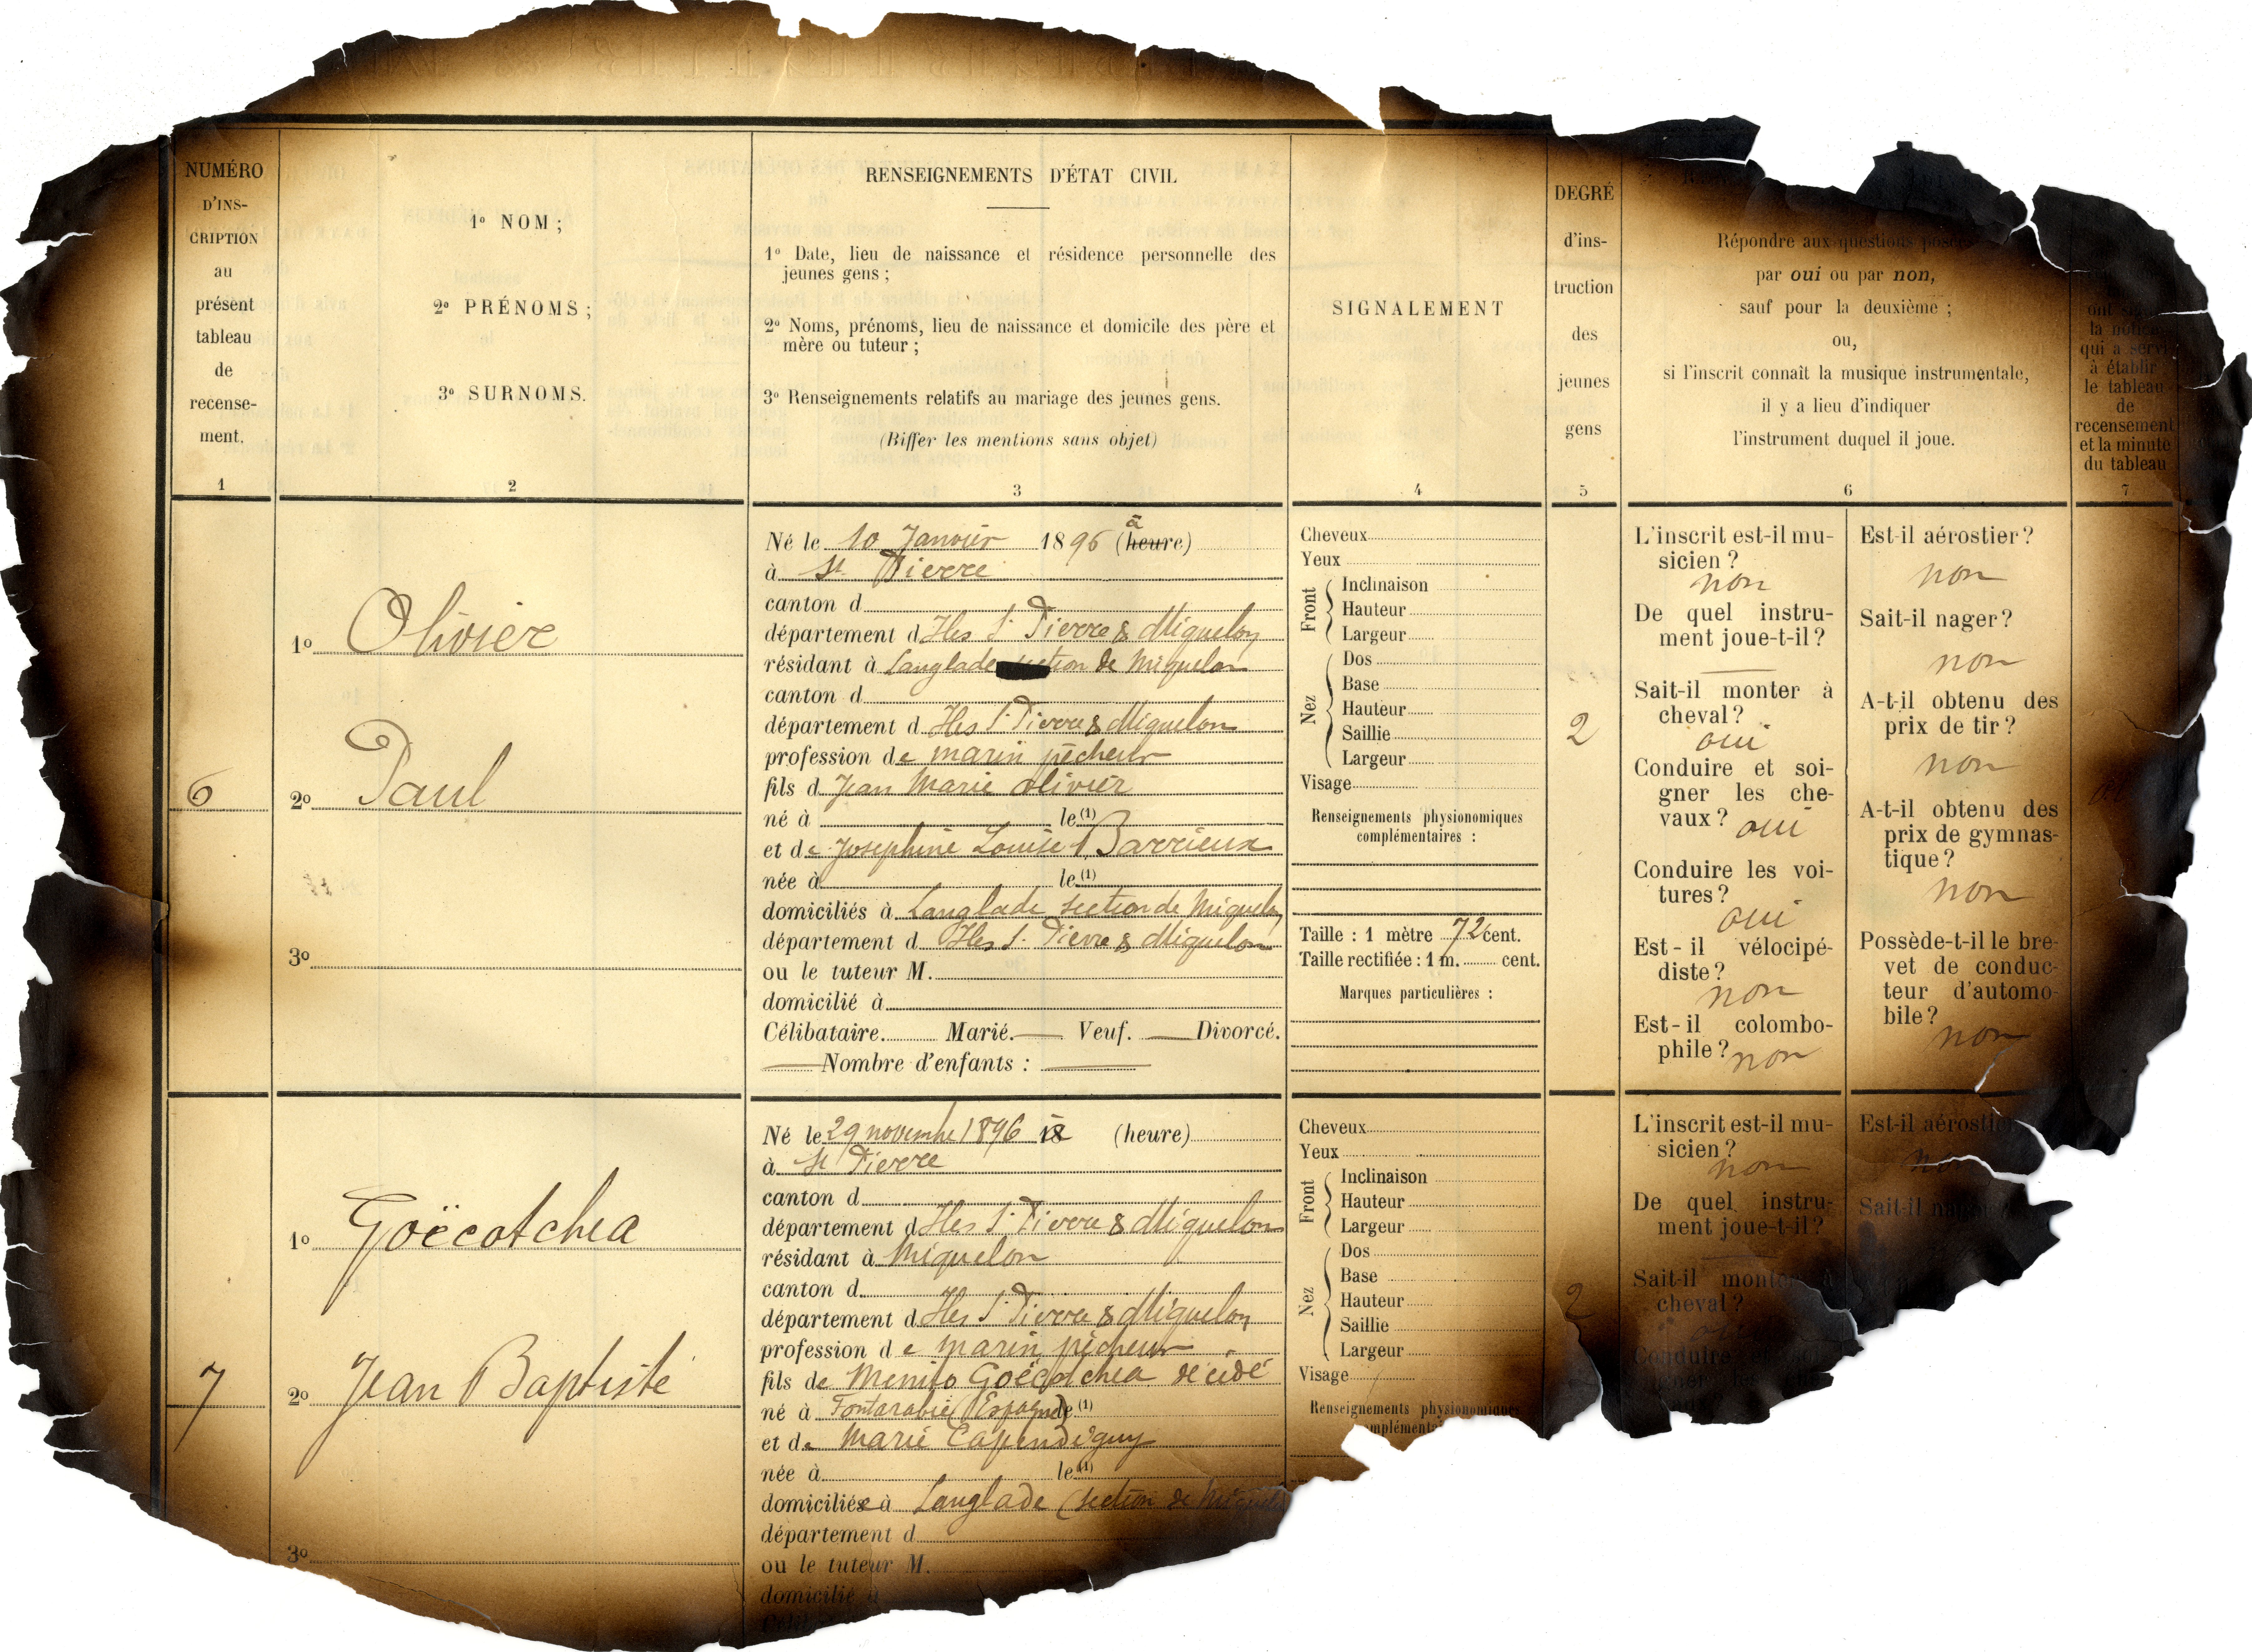 NUMÉRO
D'INS-
CRIPTION
au
présent
tableau
de
recense-
ment.
1
1º NOM ;
2º PRÉNOMS ;
3º SURNOMS.
2
RENSEIGNEMENTS D'ÉTAT CIVIL
1º Date, lieu de naissance et résidence personnelle des
jeunes gens ;
2º Noms, prénoms, lieu de naissance et domicile des père et
mère ou tuteur ;
3º Renseignements relatifs au mariage des jeunes gens.
(Biffer les mentions sans objet)
3
SIGNALEMENT
4
DEGRÉ
d'ins-
truction
des
jeunes
gens
5
Répondre aux questions
par oui ou par non,
sauf pour la deuxième ;
ou,
si l'inscrit connaît la musique instrumentale,
il y a lieu d'indiquer
l'instrument duquel il joue.
6
ont
la notice
qui a servi
à établir
le tableau
de
recensement
et la minute
du tableau
7
6
1º Olivier
2º Paul
3º
Né le 10 Janvier 1896 (heure) à
à St Pierre
canton d
département d Iles St Pierre & Miquelon
résidant à Langlade section de Miquelon
canton d
département d Iles St Pierre & Miquelon
profession de marin pêcheur
fils d Jean Marie Olivier
né à le (1)
et de Joséphine Louise Barrieux
née à le (1)
domiciliés à Langlade section de Miquelon
département d Iles St Pierre & Miquelon
ou le tuteur M.
domicilié à
Célibataire. Marié. Veuf. Divorcé.
Nombre d'enfants :
Cheveux
Yeux
Front
Inclinaison
Hauteur
Largeur
Nez
Dos
Base
Hauteur
Saillie
Largeur
Visage
Renseignements physionomiques
complémentaires :
Taille : 1 mètre 72 cent.
Taille rectifiée : 1 m. cent.
Marques particulières :
2
L'inscrit est-il mu-
sicien ?
non
De quel instru-
ment joue-t-il ?
Sait-il monter à
cheval ?
oui
Conduire et soi-
gner les che-
vaux ? oui
Conduire les voi-
tures ?
oui
Est-il vélocipé-
diste ?
non
Est-il colombo-
phile ? non
Est-il aérostier ?
non
Sait-il nager ?
non
A-t-il obtenu des
prix de tir ?
non
A-t-il obtenu des
prix de gymnas-
tique ?
non
Possède-t-il le bre-
vet de conduc-
teur d'automo-
bile ?
non
7
1º Goëcotchea
2º Jean Baptiste
3º
Né le 29 novembre 1896 18 à (heure)
à St Pierre
canton d
département d Iles St Pierre & Miquelon
résidant à Miquelon
canton d
département d Iles St Pierre & Miquelon
profession de marin pêcheur
fils de Menito Goëcotchea décédé
né à Fontarabie (Espagne) le (1)
et de Marie Capendeguy
née à le (1)
domiciliée à Langlade (section de Miquelon
département d
ou le tuteur M.
domicilié à
Cheveux
Yeux
Front
Inclinaison
Hauteur
Largeur
Nez
Dos
Base
Hauteur
Saillie
Largeur
Visage
Renseignements physionomiques
2
L'inscrit est-il mu-
sicien ?
non
De quel instru-
ment joue-t-il ?
Sait-il monter à
cheval ?
Conduire
Est-il aérostier
non
Sait-il